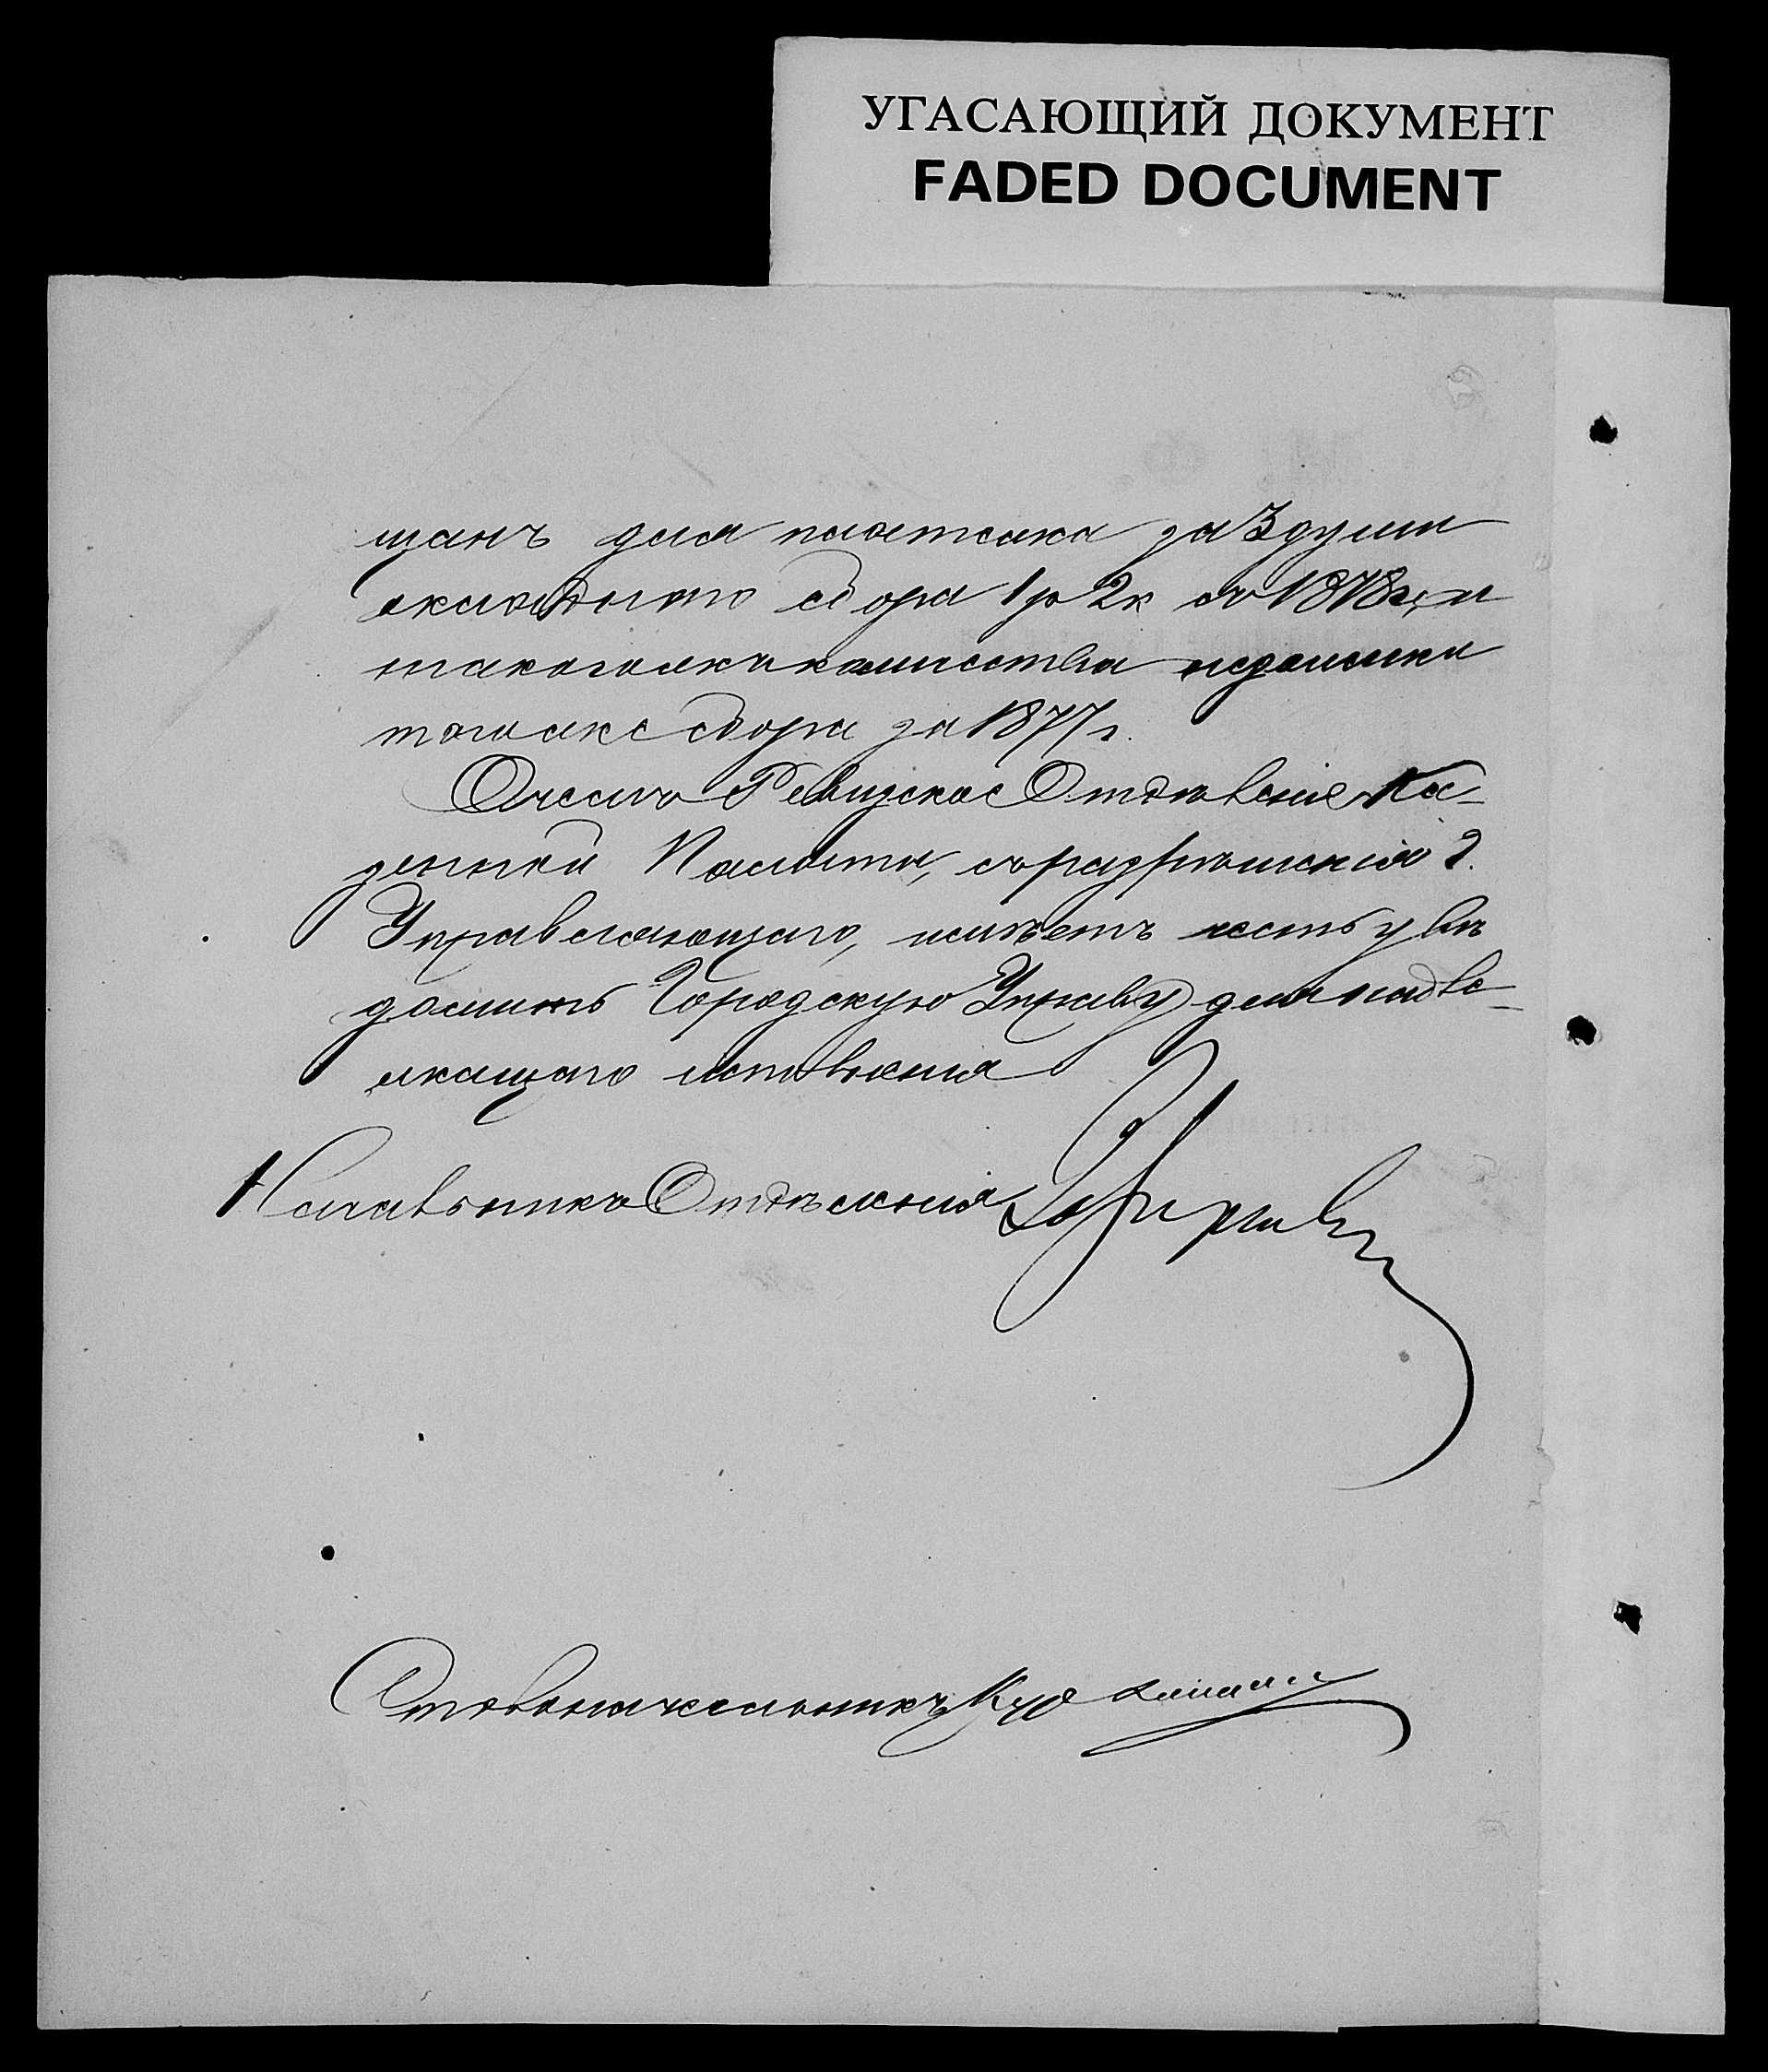 УГАСАЮЩИЙ ДОКУМЕНТ
FADED DOCUMENT
щанъ для платежа за 3 души
окладнаго сбора 1 р 2 к съ 1878 г, и
такогоже количества недоимки
тогоже сбора за 1877 г.
О чемъ Ревизское Отдѣленіе Ка-
зенной Палаты, съ разрѣшенія Г.
Управляющаго, имѣетъ честь увѣ
домить Городскую Управу для надле-
жащаго исполненія
Начальникъ Отдѣленія
Столоначальникъ